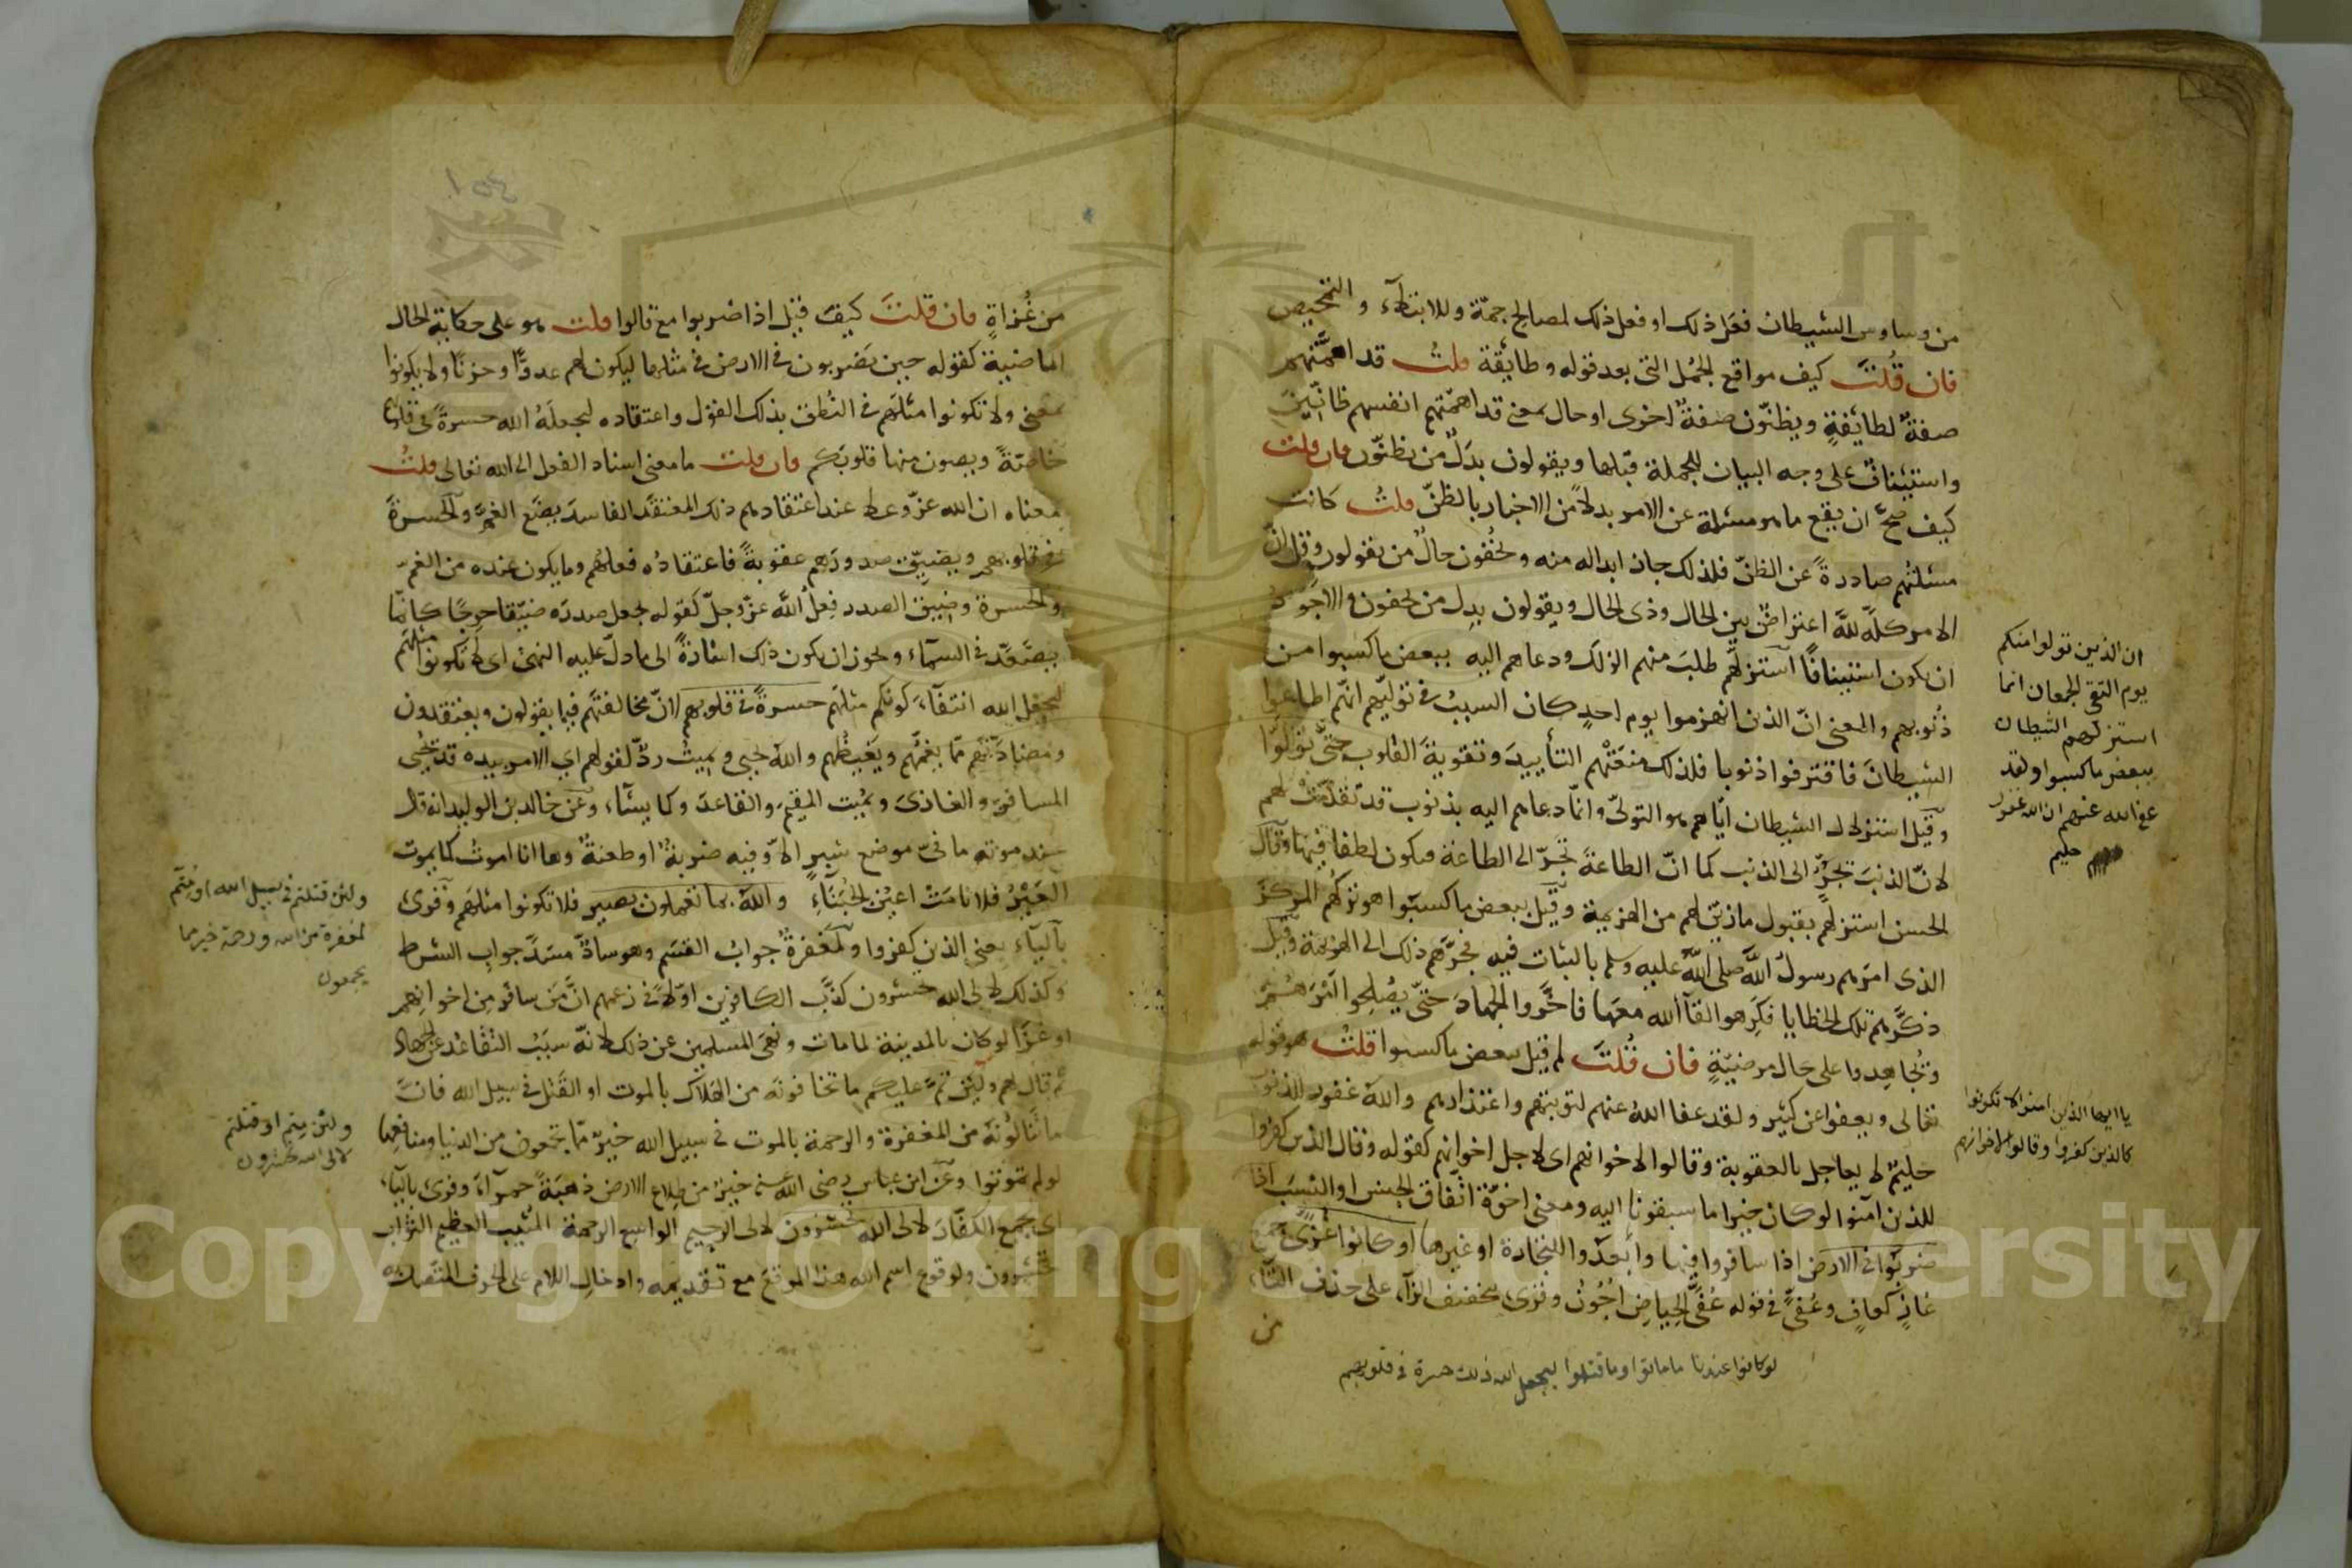 من وساوس الشيطان فعل ذلك او فعل ذلك لمصالح جمة وللابتلاء والتمحيص
فان قلت كيف مواقع الجمل التى بعد قوله وطائفة قلت قد اهمتهم
صفة لطائفة ويظنون صفة اخرى او حال بمعنى قد اهمتهم انفسهم ظانين
واستيناف على وجه البيان للجملة قبلها ويقولون بدل من يظنون فان قلت
كيف صح ان يقع ما هو مسئلة عن الامر بدلا من الاخبار بالظن قلت كانت
مسئلتهم صادرة عن الظن فلذلك جاز ابداله منه ويخفون حال من يقولون وقل ان
الامر كله لله اعتراض بين الحال وذى الحال ويقولون بدل من يخفون والاجود
ان يكون استينافا استزلهم طلب منهم الزلل ودعاهم اليه ببعض ما كسبوا من
ذنوبهم والمعنى ان الذين انهزموا يوم احد كان السبب فى توليهم انهم اطاعوا
الشيطان فاقترفوا ذنوبا فلذلك منعتهم التأييد وتقوية القلوب حتى تولوا
وقيل استزلال الشيطان اياهم هو التولى وانما دعاهم اليه بذنوب قد تقدمت لهم
لان الذنب تجر الى الذنب كما ان الطاعة تجر الى الطاعة فيكون لطفا فيها وقال
الحسن استزلهم بقبول ما زين لهم من الهزيمة وقيل ببعض ما كسبوا هو تركهم المركز
الذى امرهم رسول الله صلى الله عليه وسلم بالثبات فيه فجرهم ذلك الى الهزيمة وقيل
ذكرهم تلك الخطايا فكرهوا لقاء الله معها فاخروا الجهاد حتى يصلحوا امرهم
ويجاهدوا على حال مرضية فان قلت لم قيل ببعض ما كسبوا قلت هو قوله
تعالى ويعفوا عن كثير ولقد عفا الله عنهم لتوبتهم واعتذارهم والله غفور للذنوب
حليم لا يعاجل بالعقوبة وقالوا لاخوانهم اى لاجل اخوانهم كقوله وقال الذين كفروا
للذين آمنوا لو كان خيرا ما سبقونا اليه ومعنى اخوة اتفاق الجنس او النسب اذا
ضربوا فى الارض اذا سافروا فيها وابعدوا للتجارة او غيرها او كانوا غزى جمع
غاز كعاف وعفى فى قوله عفى الحياض اجون وقرى بتخفيف الزاء على حذف التاء
من
لو كانوا عندنا ما ماتوا وما قتلوا ليجعل الله ذلك حسرة فى قلوبهم
ان الذين تولوا منكم
يوم التقى الجمعان انما
استزلهم الشيطان
ببعض ما كسبوا ولقد
عفا الله عنهم ان الله غفور
حليم
يا ايها الذين امنوا لا تكونوا
كالذين كفروا وقالوا لاخوانهم
من غزاة فان قلت كيف قيل اذا ضربوا مع قالوا قلت هو على حكاية الحال
الماضية كقوله حين يضربون فى الارض فى مثلها ليكون لهم عدوا وحزنا ولا يكونوا
بمعنى ولا تكونوا مثلهم فى النطق بذلك القول واعتقاده ليجعله الله حسرة فى قلوبهم
خاصة ويصون منها قلوبكم فان قلت ما معنى اسناد الفعل الى الله تعالى قلت
معناه ان الله عز وعلا عند اعتقادهم ذلك المعتقد الفاسد يضع الغم والحسرة
فى قلوبهم ويضيق صدورهم عقوبة فاعتقاده فعلهم وما يكون عنده من الغم
والحسرة وضيق الصدر فعل الله عز وجل كقوله يجعل صدره ضيقا حرجا كانما
يصعد فى السماء ويجوز ان يكون ذلك اشارة الى ما دل عليه النهى اى لا تكونوا مثلهم
ليجعل الله انتفاء كونكم مثلهم حسرة فى قلوبهم لان مخالفتهم فيما يقولون ويعتقدون
ومضادتهم مما يغمهم ويغيظهم والله يحيى ويميت رد لقولهم اى الامر بيده قد يحيى
المسافر والغازى ويميت المقيم والقاعد وكما يشاء وعن خالد بن الوليد انه قال
عند موته ما فى موضع شبر الا وفيه ضربة او طعنة وها انا اموت كما يموت
العير فلا نامت اعين الجبناء والله بما تعملون بصير فلا تكونوا مثلهم وقرى
بالياء يعنى الذين كفروا ولمغفرة جواب القسم وهو ساد مسد جواب الشرط
وكذلك لالى الله تحشرون كذب الكافرين اولا فى زعمهم ان من سافر من اخوانهم
او غزا لو كان بالمدينة لما مات ونهى المسلمين عن ذلك لانه سبب التقاعد عن الجهاد
ثم قال لهم ولئن تم عليكم ما تخافونه من الهلاك بالموت او القتل فى سبيل الله فان
ما تنالونه من المغفرة والرحمة بالموت فى سبيل الله خير مما تجمعون من الدنيا ومنافعها
لو لم تموتوا وعن ابن عباس رضى الله عنه خير من طلاع الارض ذهبة حمراء وقرى بالياء
اى يجمع الكفار لالى الله تحشرون لالى الرحيم الواسع الرحمة المثيب العظيم الثواب
تحشرون ولوقوع اسم الله هذا الموقع مع تقديمه وادخال اللام على الحرف المتصل به
ولئن قتلتم فى سبيل الله او متم
لمغفرة من الله ورحمة خير مما
يجمعون
ولئن متم او قتلتم
لالى الله تحشرون
Copyright © King Saud University